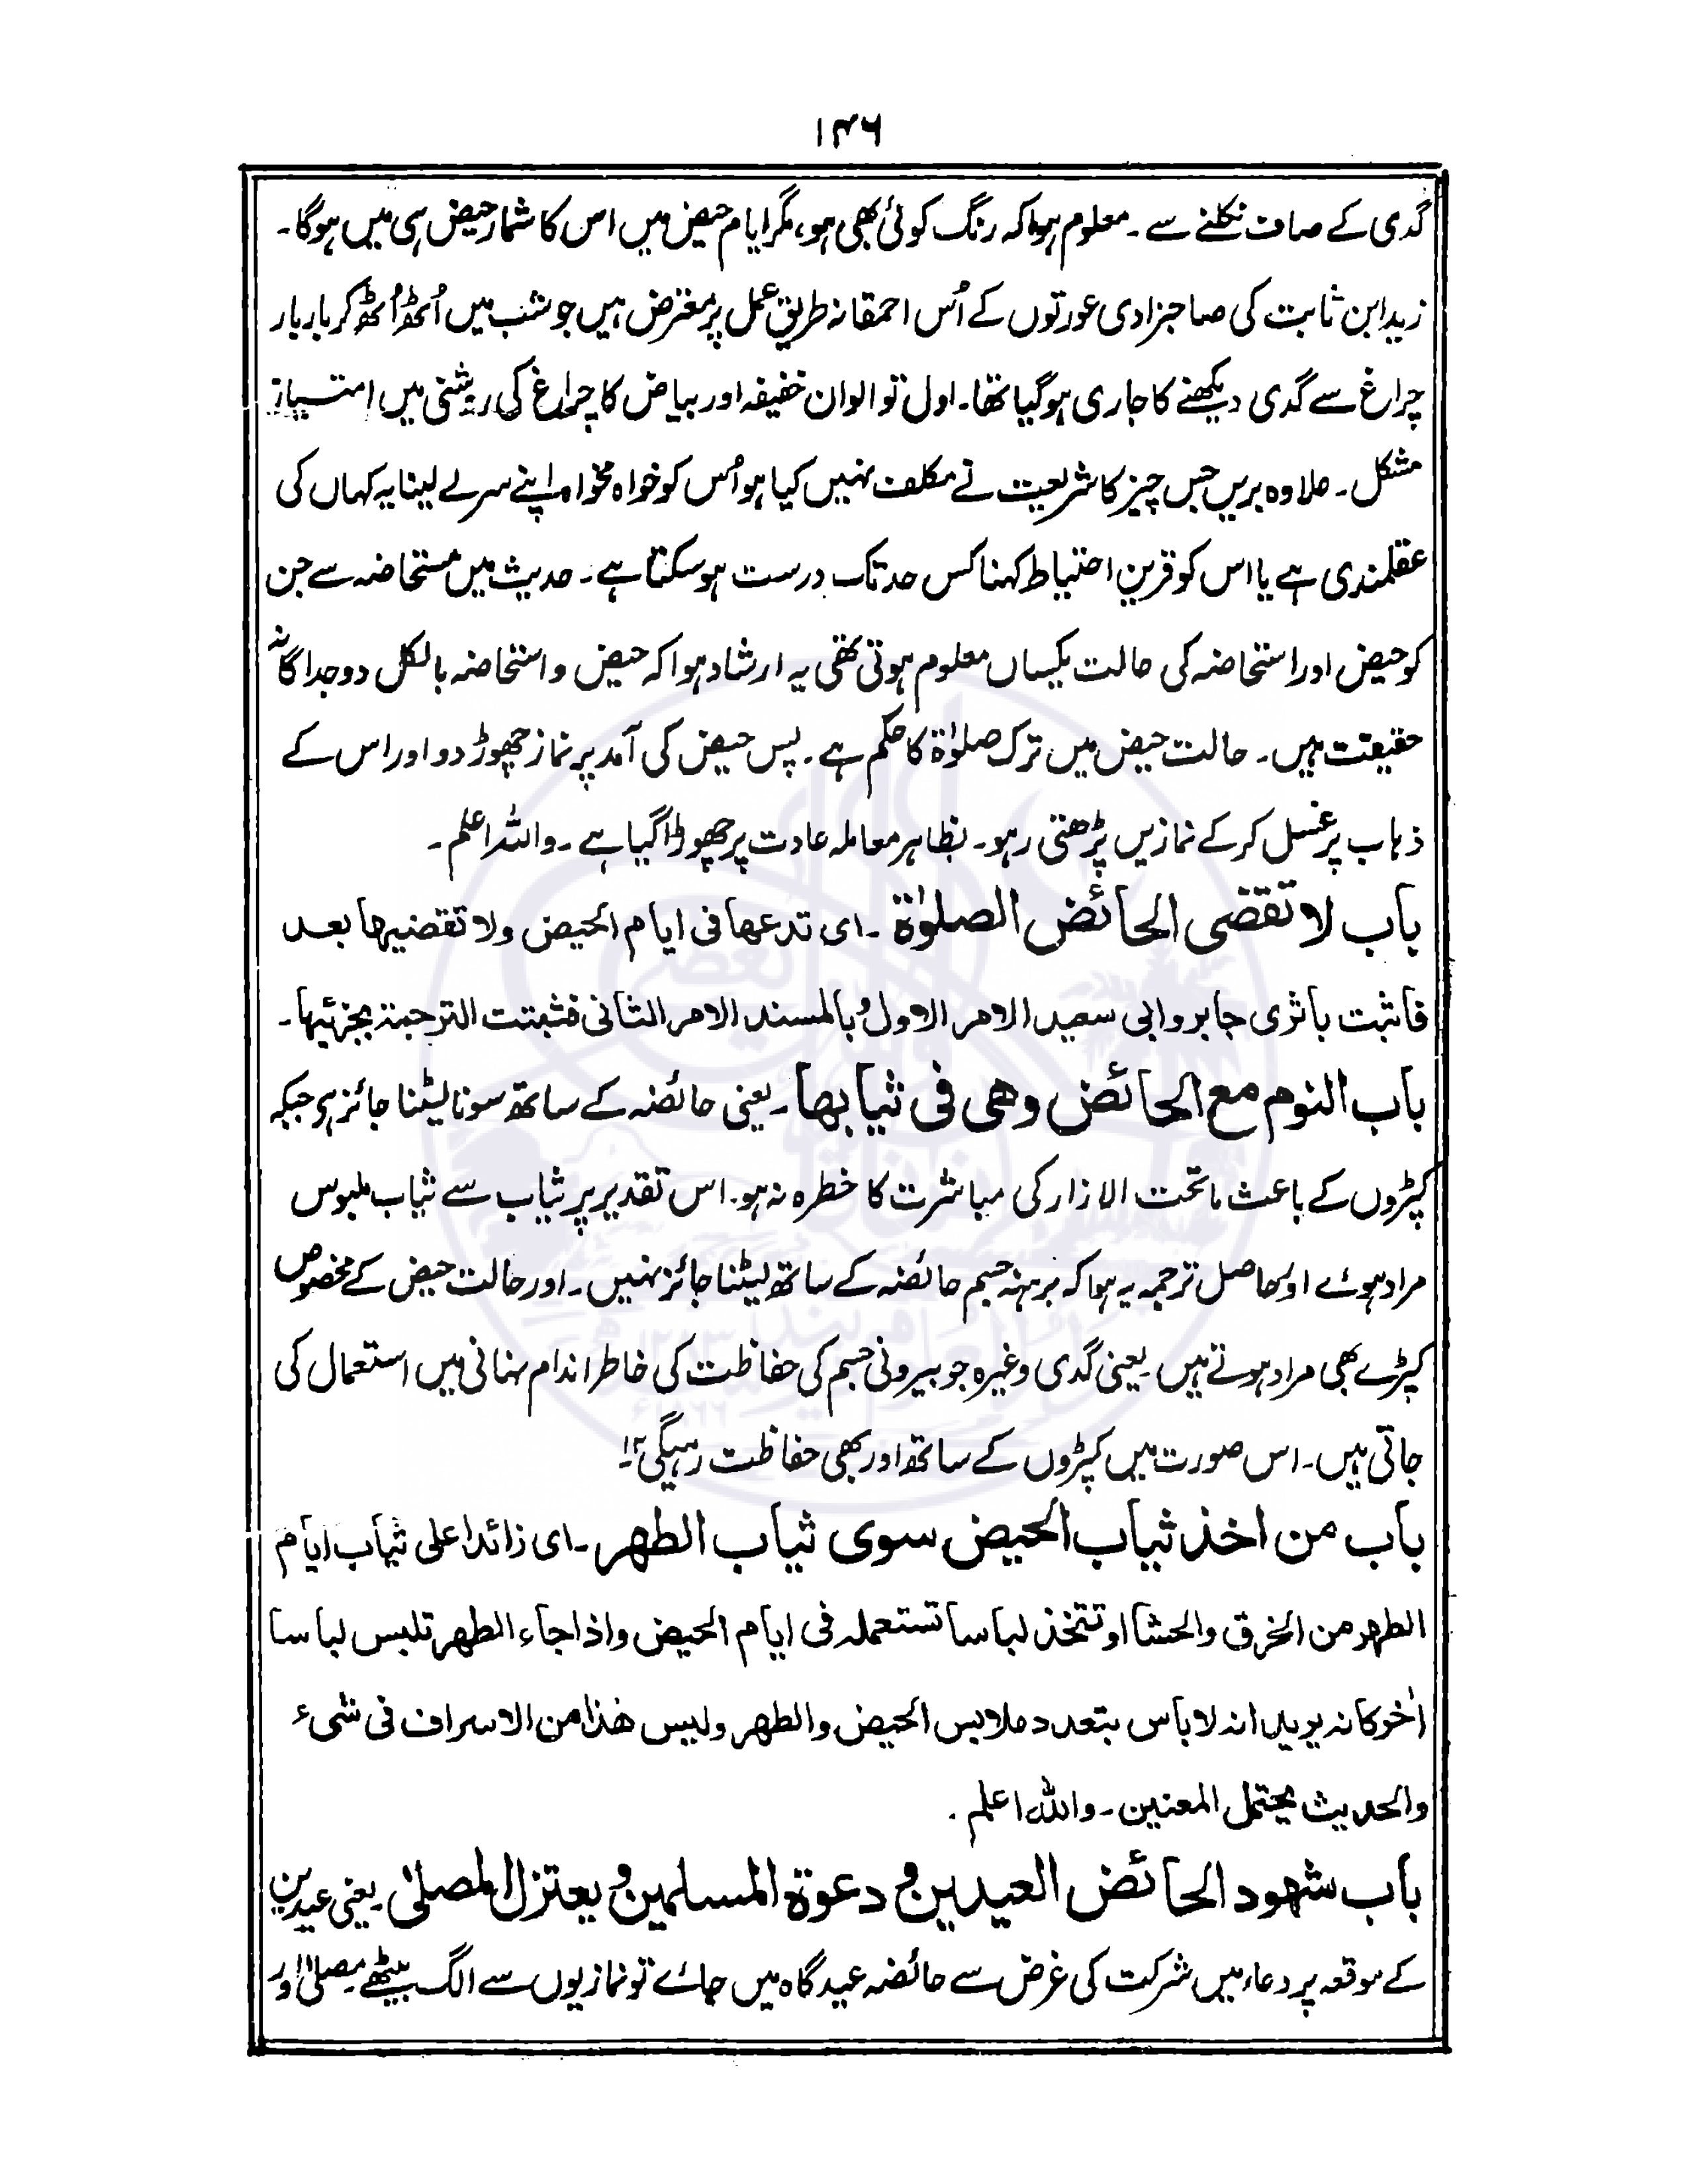 ۱۴۶
گدی کے صاف نکلنے سے ۔ معلوم ہوا کہ رنگ کوئی بھی ہو، مگر ایام حیض میں اس کا شمار حیض ہی میں ہوگا ۔
زید ابن ثابت کی صاحبزادی عورتوں کے اُس احمقانہ طریق عمل پر معترض ہیں جو شب میں اُٹھ اُٹھ کر بار بار
چراغ سے گدی دیکھنے کا جاری ہوگیا تھا ۔ اول تو الوان خفیفہ اور بیاض کا چراغ کی روشنی میں امتیاز
مشکل ۔ علاوہ بریں جس چیز کا شریعت نے مکلف نہیں کیا ہو اُس کو خواہ مخواہ اپنے سر لے لینا یہ کہاں کی
عقلمندی ہے یا اس کو قرین احتیاط کہنا کس حد تک درست ہو سکتا ہے ۔ حدیث میں مستحاضہ سے جن
کو حیض اور استحاضہ کی حالت یکساں معلوم ہوتی تھی یہ ارشاد ہوا کہ حیض و استحاضہ بالکل دو جداگانہ
حقیقت ہیں ۔ حالت حیض میں ترک صلوٰۃ کا حکم ہے ۔ پس حیض کی آمد پر نماز چھوڑ دو اور اس کے
ذہاب پر غسل کر کے نمازیں پڑھتی رہو ۔ بظاہر معاملہ عادت پر چھوڑا گیا ہے ۔ واللہ اعلم ۔
باب لا تقضی الحائض الصلوٰۃ ۔ ای تدعھا فی ایام الحیض ولا تقضیھا بعد
فاثبت باثری جابر وابی سعید الامر الاول وبالمسند الامر الثانی فثبتت الترجمۃ بجزئیھا ۔
باب النوم مع الحائض وھی فی ثیابھا ۔ یعنی حائضہ کے ساتھ سونا لیٹنا جائز ہی جبکہ
کپڑوں کے باعث ماتحت الازار کی مباشرت کا خطرہ نہ ہو ۔ اس تقدیر پر ثیاب سے ثیاب ملبوس
مراد ہوئے اور حاصل ترجمہ یہ ہوا کہ برہنہ جسم حائضہ کے ساتھ لیٹنا جائز نہیں ۔ اور حالت حیض کے مخصوص
کپڑے بھی مراد ہوتے ہیں یعنی گدی وغیرہ جو بیرونی جسم کی حفاظت کی خاطر اندام نہانی میں استعمال کی
جاتی ہیں ۔ اس صورت میں کپڑوں کے ساتھ اور بھی حفاظت رہیگی ۱۲
باب من اخذ ثیاب الحیض سوی ثیاب الطھر ۔ ای زائدا علی ثیاب ایام
الطھر من الخرق والحشا او تتخذ لباسا تستعملہ فی ایام الحیض واذا جاء الطھر تلبس لباسا
اٰخر کانہ یرید انہ لا باس بتعدد ملابس الحیض والطھر ولیس ھٰذا من الاسراف فی شیٔ
والحدیث یحتمل المعنین ۔ واللہ اعلم ۔
باب شھود الحائض العیدین و دعوۃ المسلمین و یعتزل المصلیٰ ۔ یعنی عیدین
کے موقعہ پر دعاء میں شرکت کی غرض سے حائضہ عید گاہ میں جائے تو نمازیوں سے الگ بیٹھے ۔ مصلیٰ اور